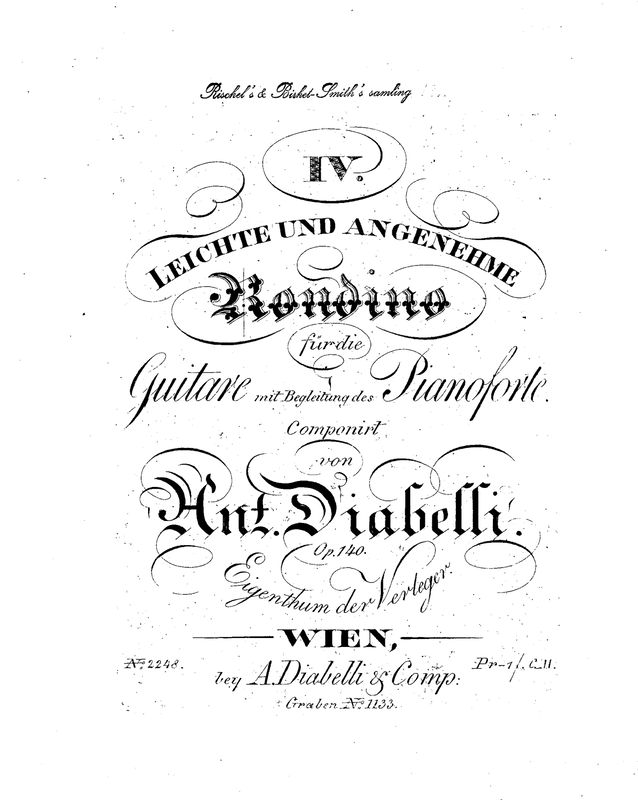 Rischel's & Birket-Smith's samling
IV.
LEICHTE UND ANGENEHME
Rondino
für die
Guitare mit Begleitung des Pianoforte.
Componirt
von
Ant. Diabelli.
Op. 140.
Eigenthum der Verleger.
WIEN,
No. 2248.
Pr-1/. C.M.
bey A. Diabelli & Comp:
Graben No. 1133.